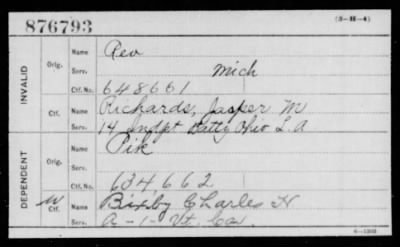 876793
(3-H-4)
INVALID
Orig.
Name Rev
Serv. Mich
Ctf. No. 648661
Ctf.
Name Richards, Jasper M
Serv. 14 Indpt Batty Ohio L.A
DEPENDENT
Orig.
Name Pik
Serv.
Ctf. No. 634,662
W
Ctf.
Name Bixby Charles H
Serv. A-1-Vt. Ca